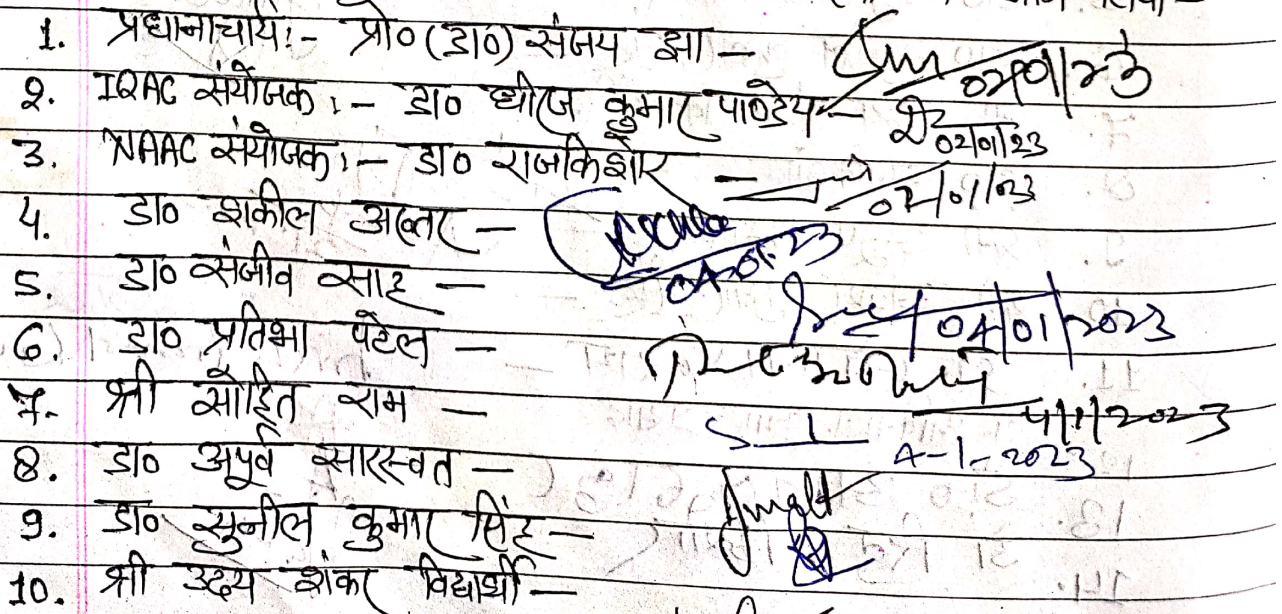 1. प्रधानाचार्य:- प्रो० (डा०) संजय झा -
2. IQAC संयोजक :- डा० धीरज कुमार पाण्डेय - 02/01/23
3. NAAC संयोजक :- डा० राजकिशोर -
4. डा० शकील अख्तर -
5. डा० संजीव साह - 04/01/2023
6. डा० प्रतिभा पटेल -
7. श्री सोहित राम - 4/1/2023
8. डा० अपूर्व सारस्वत - 4-1-2023
9. डा० सुनील कुमार सिंह -
10. श्री उदय शंकर विद्यार्थी -